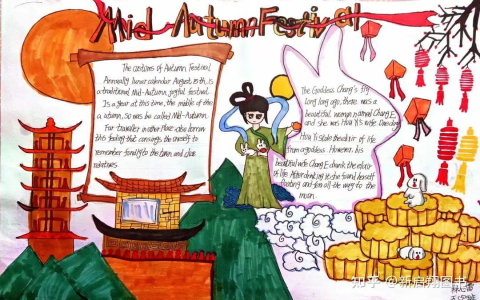 Mid-Autumn Festival
The customs of Autumn Festival
Annually lunar calendar August 15th, is
a traditional Mid-Autumn joyful festival.
Is a year at this time, the middle of the
autumn, so was be called Mid-Autumn.
For traveller in other place who borrow
this feeling that consigns the oneself to
remember family to the town and close
relatives.
The Goddess Chang's fly
long long ago, there was a
beautiful woman named Chang E,
and she was Hou Yi's wife. One day
Hou Yi stole the elixir of life
from a goddess. However, his
beautiful wife Chang E drank the elixir
of life. After drinking it she found herself
floating and flew all the way to the
moon.
知乎 @新启翔图书